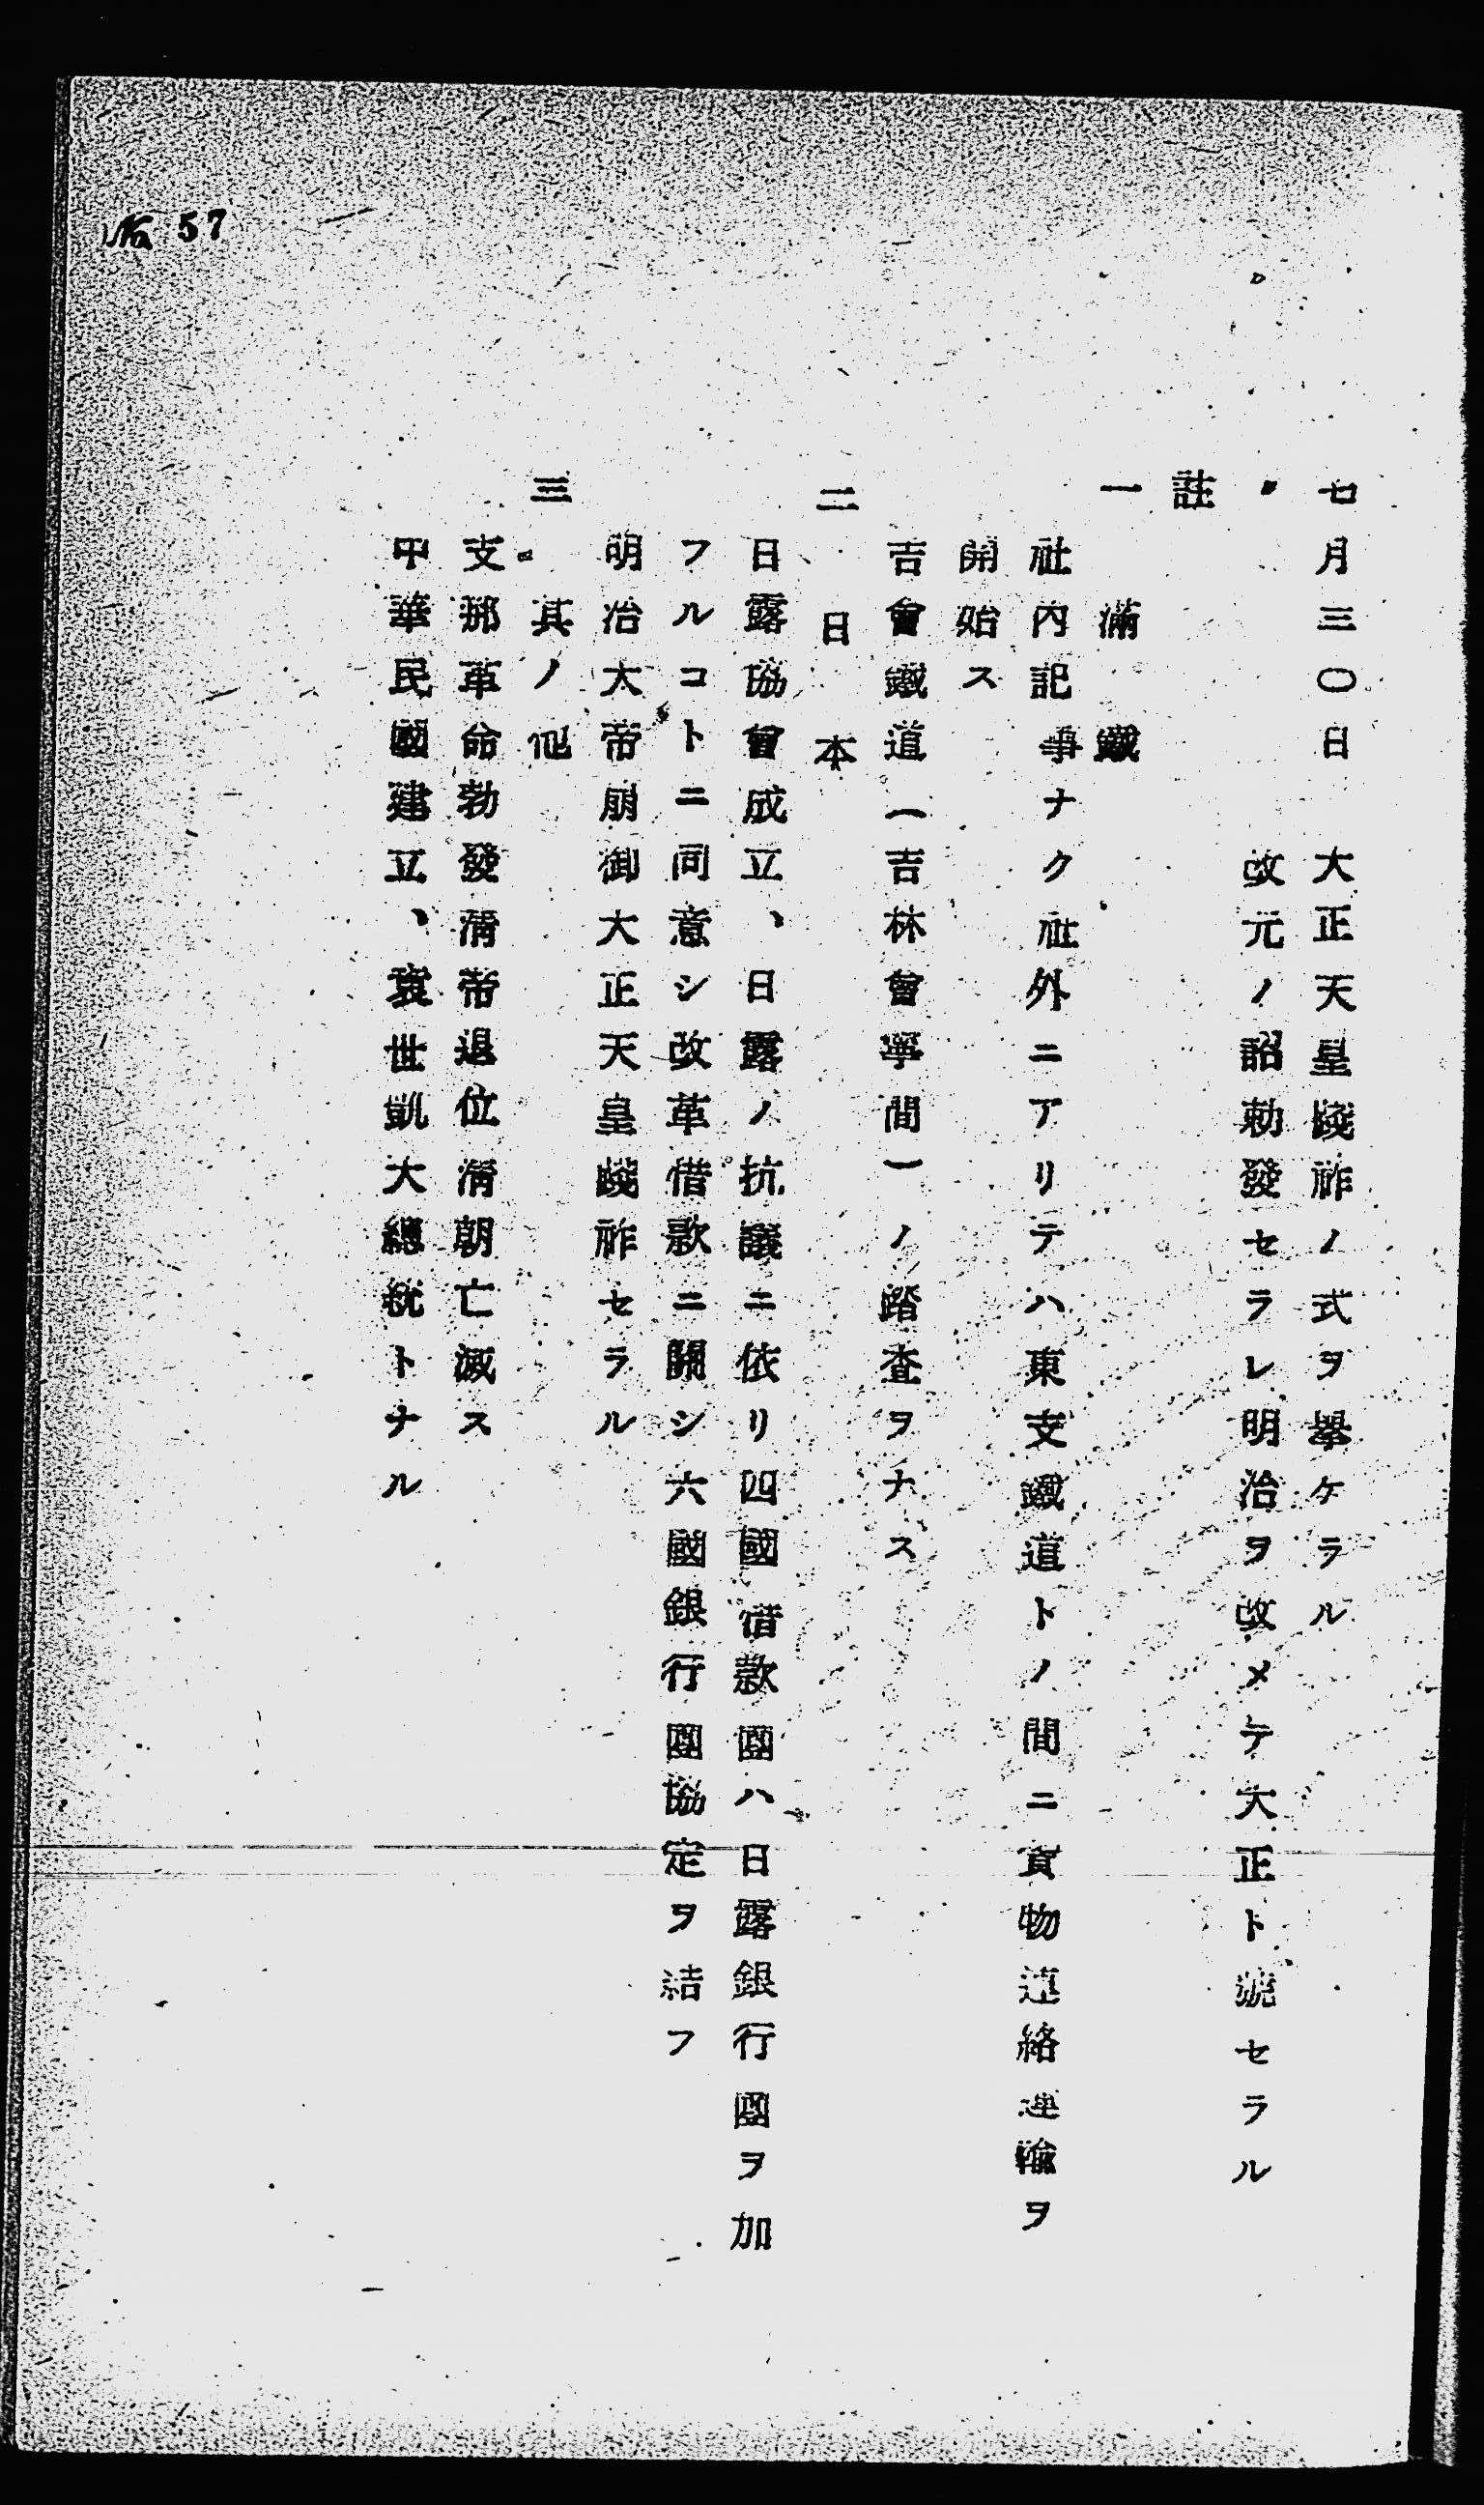 七月三〇日　大正天皇踐祚ノ式ヲ擧ケラル
〃　改元ノ詔勅發セラレ明治ヲ改メテ大正ト號セラル
註
一　滿鐵
社内記事ナク社外ニアリテハ東支鐵道トノ間ニ貨物連絡運輸ヲ
開始ス
吉會鐵道（吉林會寧間）ノ踏査ヲナス
二　日本
日露協會成立、日露ノ抗議ニ依リ四國借款團ハ日露銀行團ヲ加
フルコトニ同意シ改革借款ニ關シ六國銀行團協定ヲ結フ
明治大帝崩御大正天皇踐祚セラル
三　其ノ他
支那革命勃發淸帝退位淸朝亡滅ス
中華民國建立、袁世凱大總統トナル
No. 57